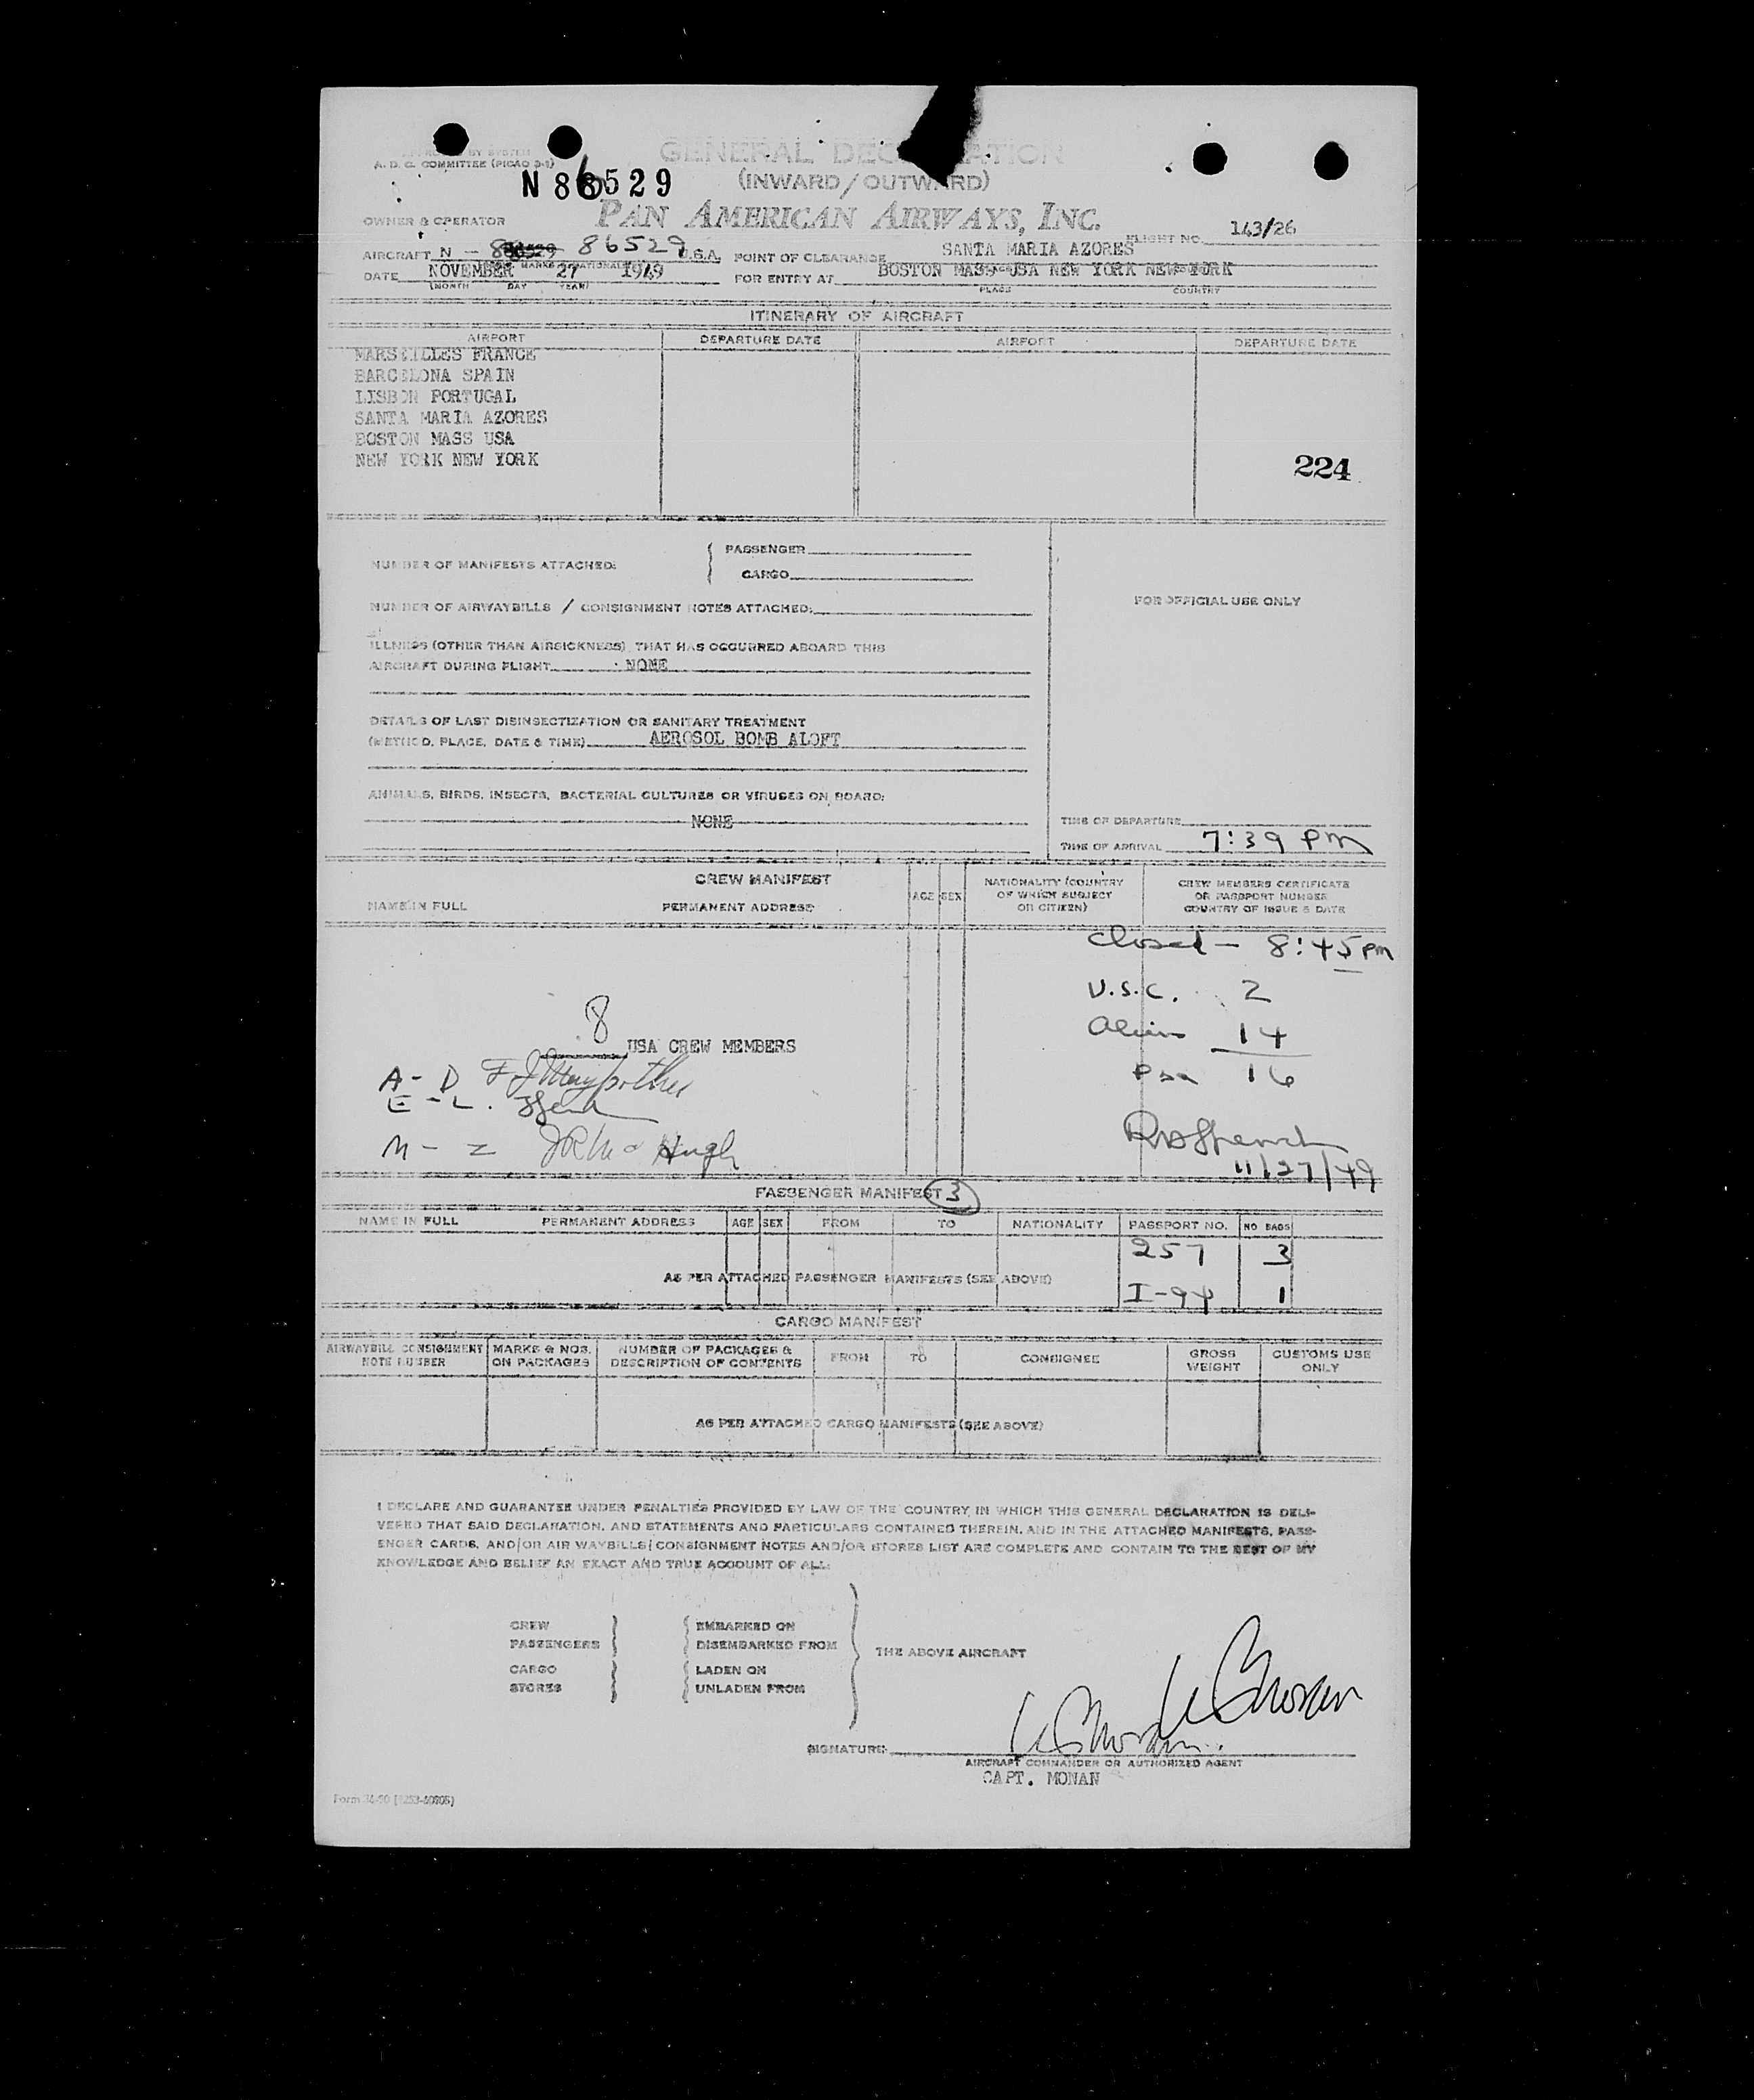 A. D. C. COMMITTEE (PICAO 3-1)
GENERAL DEC
(INWARD / OUTWARD)
N 86529
PAN AMERICAN AIRWAYS, INC.
OWNER & OPERATOR
FLIGHT NO. 143/26
AIRCRAFT N - 86529 U.S.A. POINT OF CLEARANCE SANTA MARIA AZORES
DATE NOVEMBER 27 1949 FOR ENTRY AT BOSTON MASS USA NEW YORK NEW YORK
(MONTH DAY YEAR) PLACE COUNTRY
ITINERARY OF AIRCRAFT
AIRPORT DEPARTURE DATE AIRPORT DEPARTURE DATE
MARSEILLES FRANCE
BARCELONA SPAIN
LISBON PORTUGAL
SANTA MARIA AZORES
BOSTON MASS USA
NEW YORK NEW YORK
224
NUMBER OF MANIFESTS ATTACHED: PASSENGER
CARGO
FOR OFFICIAL USE ONLY
NUMBER OF AIRWAYBILLS / CONSIGNMENT NOTES ATTACHED:
ILLNESS (OTHER THAN AIRSICKNESS) THAT HAS OCCURRED ABOARD THIS
AIRCRAFT DURING FLIGHT NONE
DETAILS OF LAST DISINSECTIZATION OR SANITARY TREATMENT
(METHOD, PLACE, DATE & TIME) AEROSOL BOMB ALOFT
ANIMALS, BIRDS, INSECTS, BACTERIAL CULTURES OR VIRUSES ON BOARD:
NONE
TIME OF DEPARTURE
TIME OF ARRIVAL 7:39 PM
CREW MANIFEST
NAME IN FULL PERMANENT ADDRESS AGE SEX NATIONALITY (COUNTRY OF WHICH SUBJECT OR CITIZEN) CREW MEMBERS CERTIFICATE OR PASSPORT NUMBER COUNTRY OF ISSUE & DATE
Closed - 8:45 pm
U.S.C. 2
Alien 14
16
8 USA CREW MEMBERS
A - D
E - L.
M - Z J R Mc Hugh
11/27/49
PASSENGER MANIFEST 3
NAME IN FULL PERMANENT ADDRESS AGE SEX FROM TO NATIONALITY PASSPORT NO. NO BAGS
257 3
AS PER ATTACHED PASSENGER MANIFESTS (SEE ABOVE)
I-94 1
CARGO MANIFEST
AIRWAYBILL CONSIGNMENT NOTE NUMBER MARKS & NOS. ON PACKAGES NUMBER OF PACKAGES & DESCRIPTION OF CONTENTS FROM TO CONSIGNEE GROSS WEIGHT CUSTOMS USE ONLY
AS PER ATTACHED CARGO MANIFESTS (SEE ABOVE)
I DECLARE AND GUARANTEE UNDER PENALTIES PROVIDED BY LAW OF THE COUNTRY IN WHICH THIS GENERAL DECLARATION IS DELI-
VERED THAT SAID DECLARATION, AND STATEMENTS AND PARTICULARS CONTAINED THEREIN, AND IN THE ATTACHED MANIFESTS, PASS-
ENGER CARDS, AND/OR AIR WAYBILLS/CONSIGNMENT NOTES AND/OR STORES LIST ARE COMPLETE AND CONTAIN TO THE BEST OF MY
KNOWLEDGE AND BELIEF AN EXACT AND TRUE ACCOUNT OF ALL:
CREW EMBARKED ON
PASSENGERS DISEMBARKED FROM
THE ABOVE AIRCRAFT
CARGO LADEN ON
STORES UNLADEN FROM
SIGNATURE:
AIRCRAFT COMMANDER OR AUTHORIZED AGENT
CAPT. MONAN